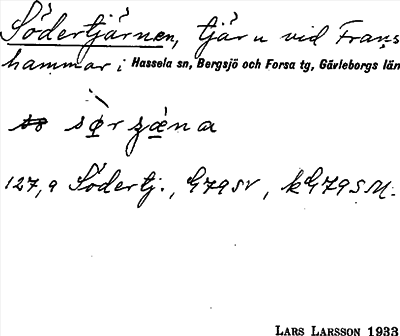 Södertjärnen, tjärn vid Frans
hammar i Hassela sn, Bergsjö och Forsa tg, Gävleborgs län
127,9 Södertj., G79SV, kG79SM.
LARS LARSSON 1933